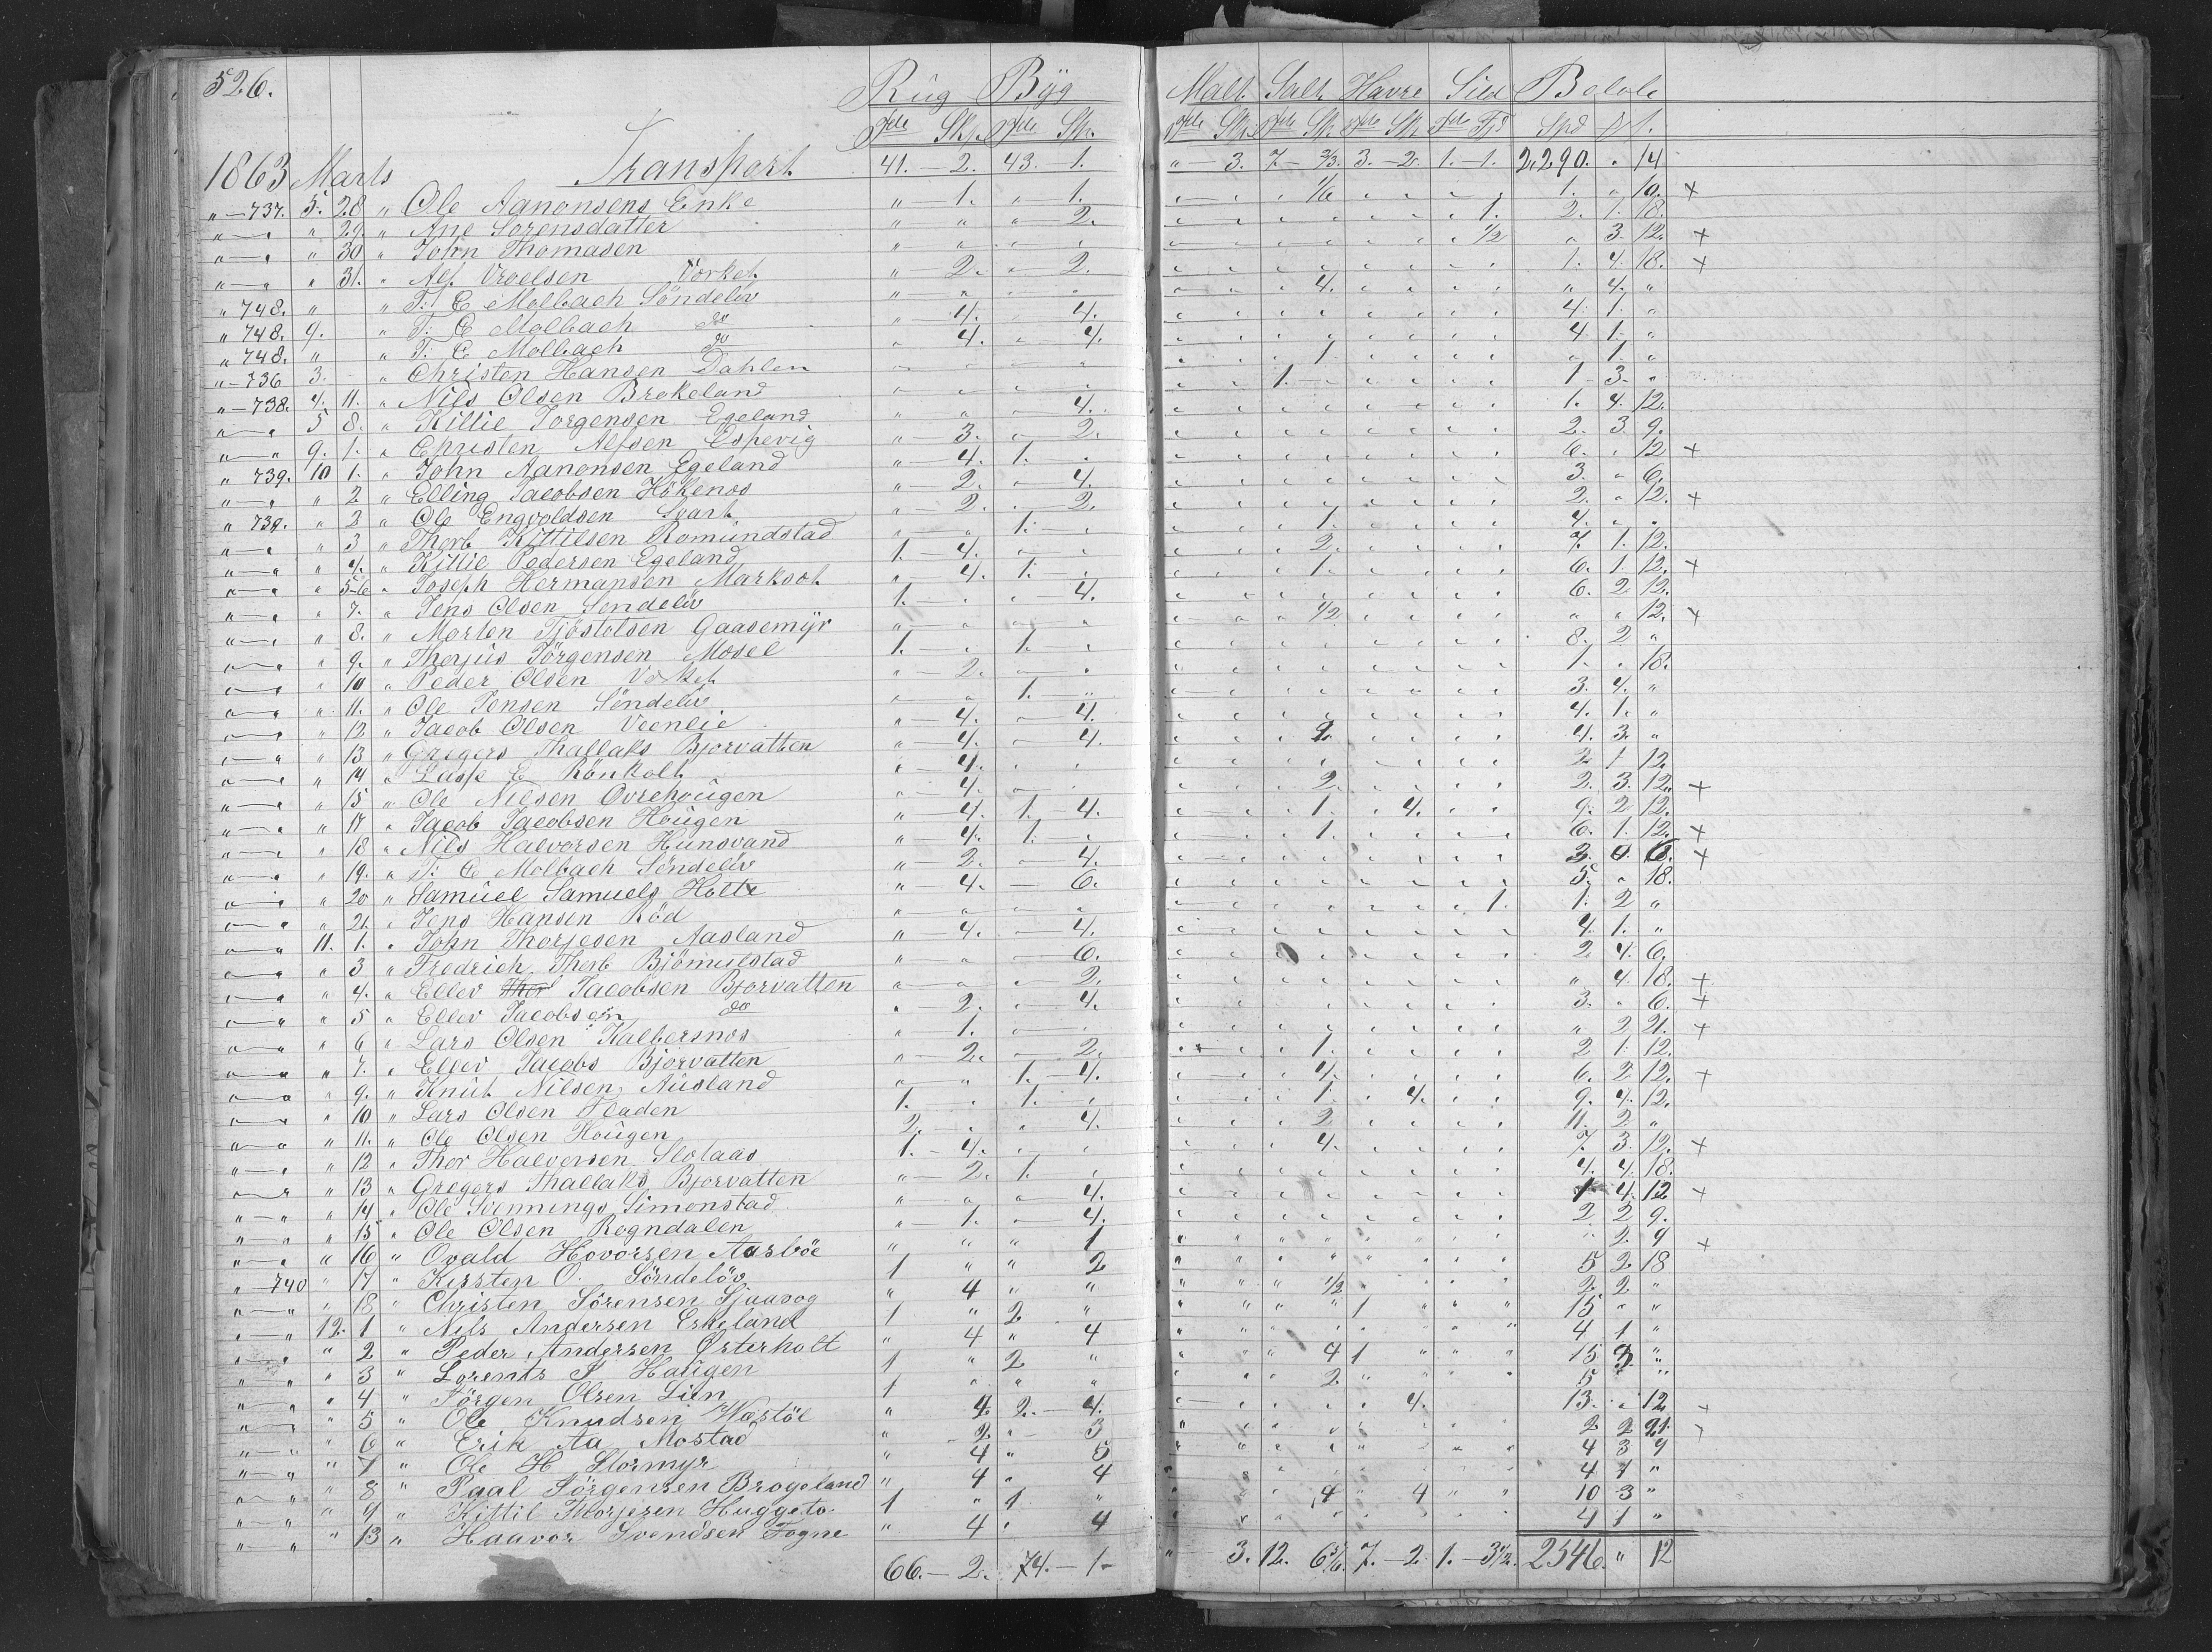 526.
Rúg Byg Malt Salt Havre Sild Beløb
Tde Skp. Tde Sk. Tde Sk. Tde Sk. Tde Sk. Tde Fjd Spd
1863 Marts Transport 41. - 2. 43. - 1. " - 3. 7. - 2/3. 3. - 2. 1. - 1. 2,290. " 14
" - 737. 5. 28 " Ole Aanonsens Enke " - 1. " 1. 1/6 1. " 10. +
" " " 29. " Ane Sorensdatter " " " 2. 1. 2. 1. 18.
" " " 30 " John Thomasen 1/2 " 3. 12. +
" " " 31. " Alf Vroelsen Vorket " 2. " 2. 1. 4. 18. +
" 748. " " T: C Molbach Söndeliv 4. " 4. "
" 748. 9. " T: C Molbach do " 4. 4. 4. 1. "
" 748. " " T. C Molbach do " 4. " 4. 4. 1. "
" - 736 3. " Christen Hansen Dahlen 1. " 1. "
" - 738. 4. 11. " Nils Olsen Brokeland 1. 1 3. "
" " 5 8. " Killie Jorgensen Egeland 4. 1. 4. 12.
" " 9. 1. " Christen Alfsen Espevig " 3. " 2. 2. 3. 9.
" 739. 10 1. " John Aanonsen Egeland " 4. 1. " 6. " 12 +
" " " 2 " Elling Jacobsen Hökenos " 2. " 4. 3. " 6.
" 739. " 2 " Ole Engvoldsen Svart " 2. " 2. 2. " 12. +
" " " 3 " Thorb Kittilsen Romundstad " " 1. " 1. 4. " "
" " " 4. " Killie Pedersen Egeland 1. - 4. " " 2. 7. 1. 12.
" " " 5-6 " Joseph Hermansen Marksot " 4. 1. " 1. 6. 1. 12. +
" " " 7. " Jens Olsen Sendeliv 1. " " 4. 6. 2 12.
" " " 8. " Morten Tjöstolsen Gaasemÿr 1/2 " " 12. +
" " " 9. " Therjus Törgensen Mosel 1. " 1. " 8. 2 "
" " " 10 " Peder Olsen Vorket " 2. " " 1. " 18.
" " " 11. " Ole Jensen Söndeliv " " 1. " 3. 4. "
" " " 12 " Jacob Olsen Veenlie " 4. " 4. 4. 1. "
" " " 13 " Gregers Thallaks Bjorvatten " 4. " 4. 4. 3. "
" " " 14 " Lasse E Rönholt " 4. " " 2 1 12
" " " 15 " Ole Nilsen Ovrehougen " 4. " " 2. 2. 3. 12. +
" " " 17 " Jacob Jacobsen Hougen " 4. 1. 4. 1. 4. 9. 2 12.
" " " 18 " Nils Halvorsen Hunsvand " 4. 1. " 1. 6. 1. 12. +
" " " 19. " T: C Molbach Söndeliv " 2. " 4. 3. 6. +
" " " 20 " Samuel Samuels Holte " 4. - 6. 5. " 18.
" " " 21. " Jens Hansen Röd 1. 1. 2 "
" " 11. 1. " John Thorjesen Aasland " 4. - 4. 4. 1. "
" " " 3 " Fredrich Therb Bjömulstad " " - 6. 2 4. 6.
" " " 4. " Ellev Thor Jacobsen Bjorvatten " " " 2. " 4 18. +
" " " 5 " Ellev Jacobsein do " 2. " 4. 3. " 6. +
" " " 6 " Lars Olsen Kalbersnos " 1. " " " 2 21. +
" " " 7. " Ellev Jacobs Bjorvatten " 2. " 2. 1. 2 1. 12.
" " " 9. " Knut Nilsen Ausland " " 1. - 4. 4. 6. 2 12. +
" " " 10 " Lars Olsen Fladen 1. " 1. " 1. 4. 9. 4. 12.
" " " 11. " Ole Olsen Hougen 2. " " 4. 2 11. 2 "
" " " 12 " Thor Halvorsen Slotaas 1. - 4. " " 4. 7. 3. 12. +
" " " 13 " Gregers Thallaks Bjorvatten " 2. 1. " 4. 4. 18.
" " " 14 " Ole Svennings Simonstad " " " 4. 1 4. 12 +
" " " 15 " Ole Olsen Rogndalen " 1. " 4. 2 2 9.
" " " 16 " Ovald Hovorsen Aasböe " " " 1 " 2. 9 +
" - 740 " 17 " Kirsten O. Söndelöv 1 " " 2 5 2 18
" " " 18 " Christen Sörensen Sjaavog " 4 " " 1/2 2 2 "
" " 12. 1 " Nils Andersen Eskeland 1 " 2 " 1 15 " "
" " " 2 " Peder Andersen Østerholt " 4 " 4 4 1 "
" " " 3 " Lorents S Haugen 1 " 2 " 4 1 15 "
" " " 4 " Jörgen Olsen Lien 1 " " " 2 5 " "
" " " 5 " Ole Knudsen Hæstöl " 4. 2. - 4. 4. 13. " 12 +
" " " 6 " Erik Aa Mostad " 2 " 3 2 2 21.
" " " 7 " Ole H Stormyr " 4 " 5 4 3 9
" " " 8 " Paal Törgensen Brogeland " 4 " 4 4 1 "
" " " 9 " Kittil Thorjesen Huggeto 1 " 1 " 4 4 10 3 "
" " " 13 " Haavor Svendsen Fogne " 4 " 4 4 1 "
66. - 2. 74. - 1 - " - 3. 12. 6 5/6. 7. - 2 1. - 3 1/2. 2546. " 12